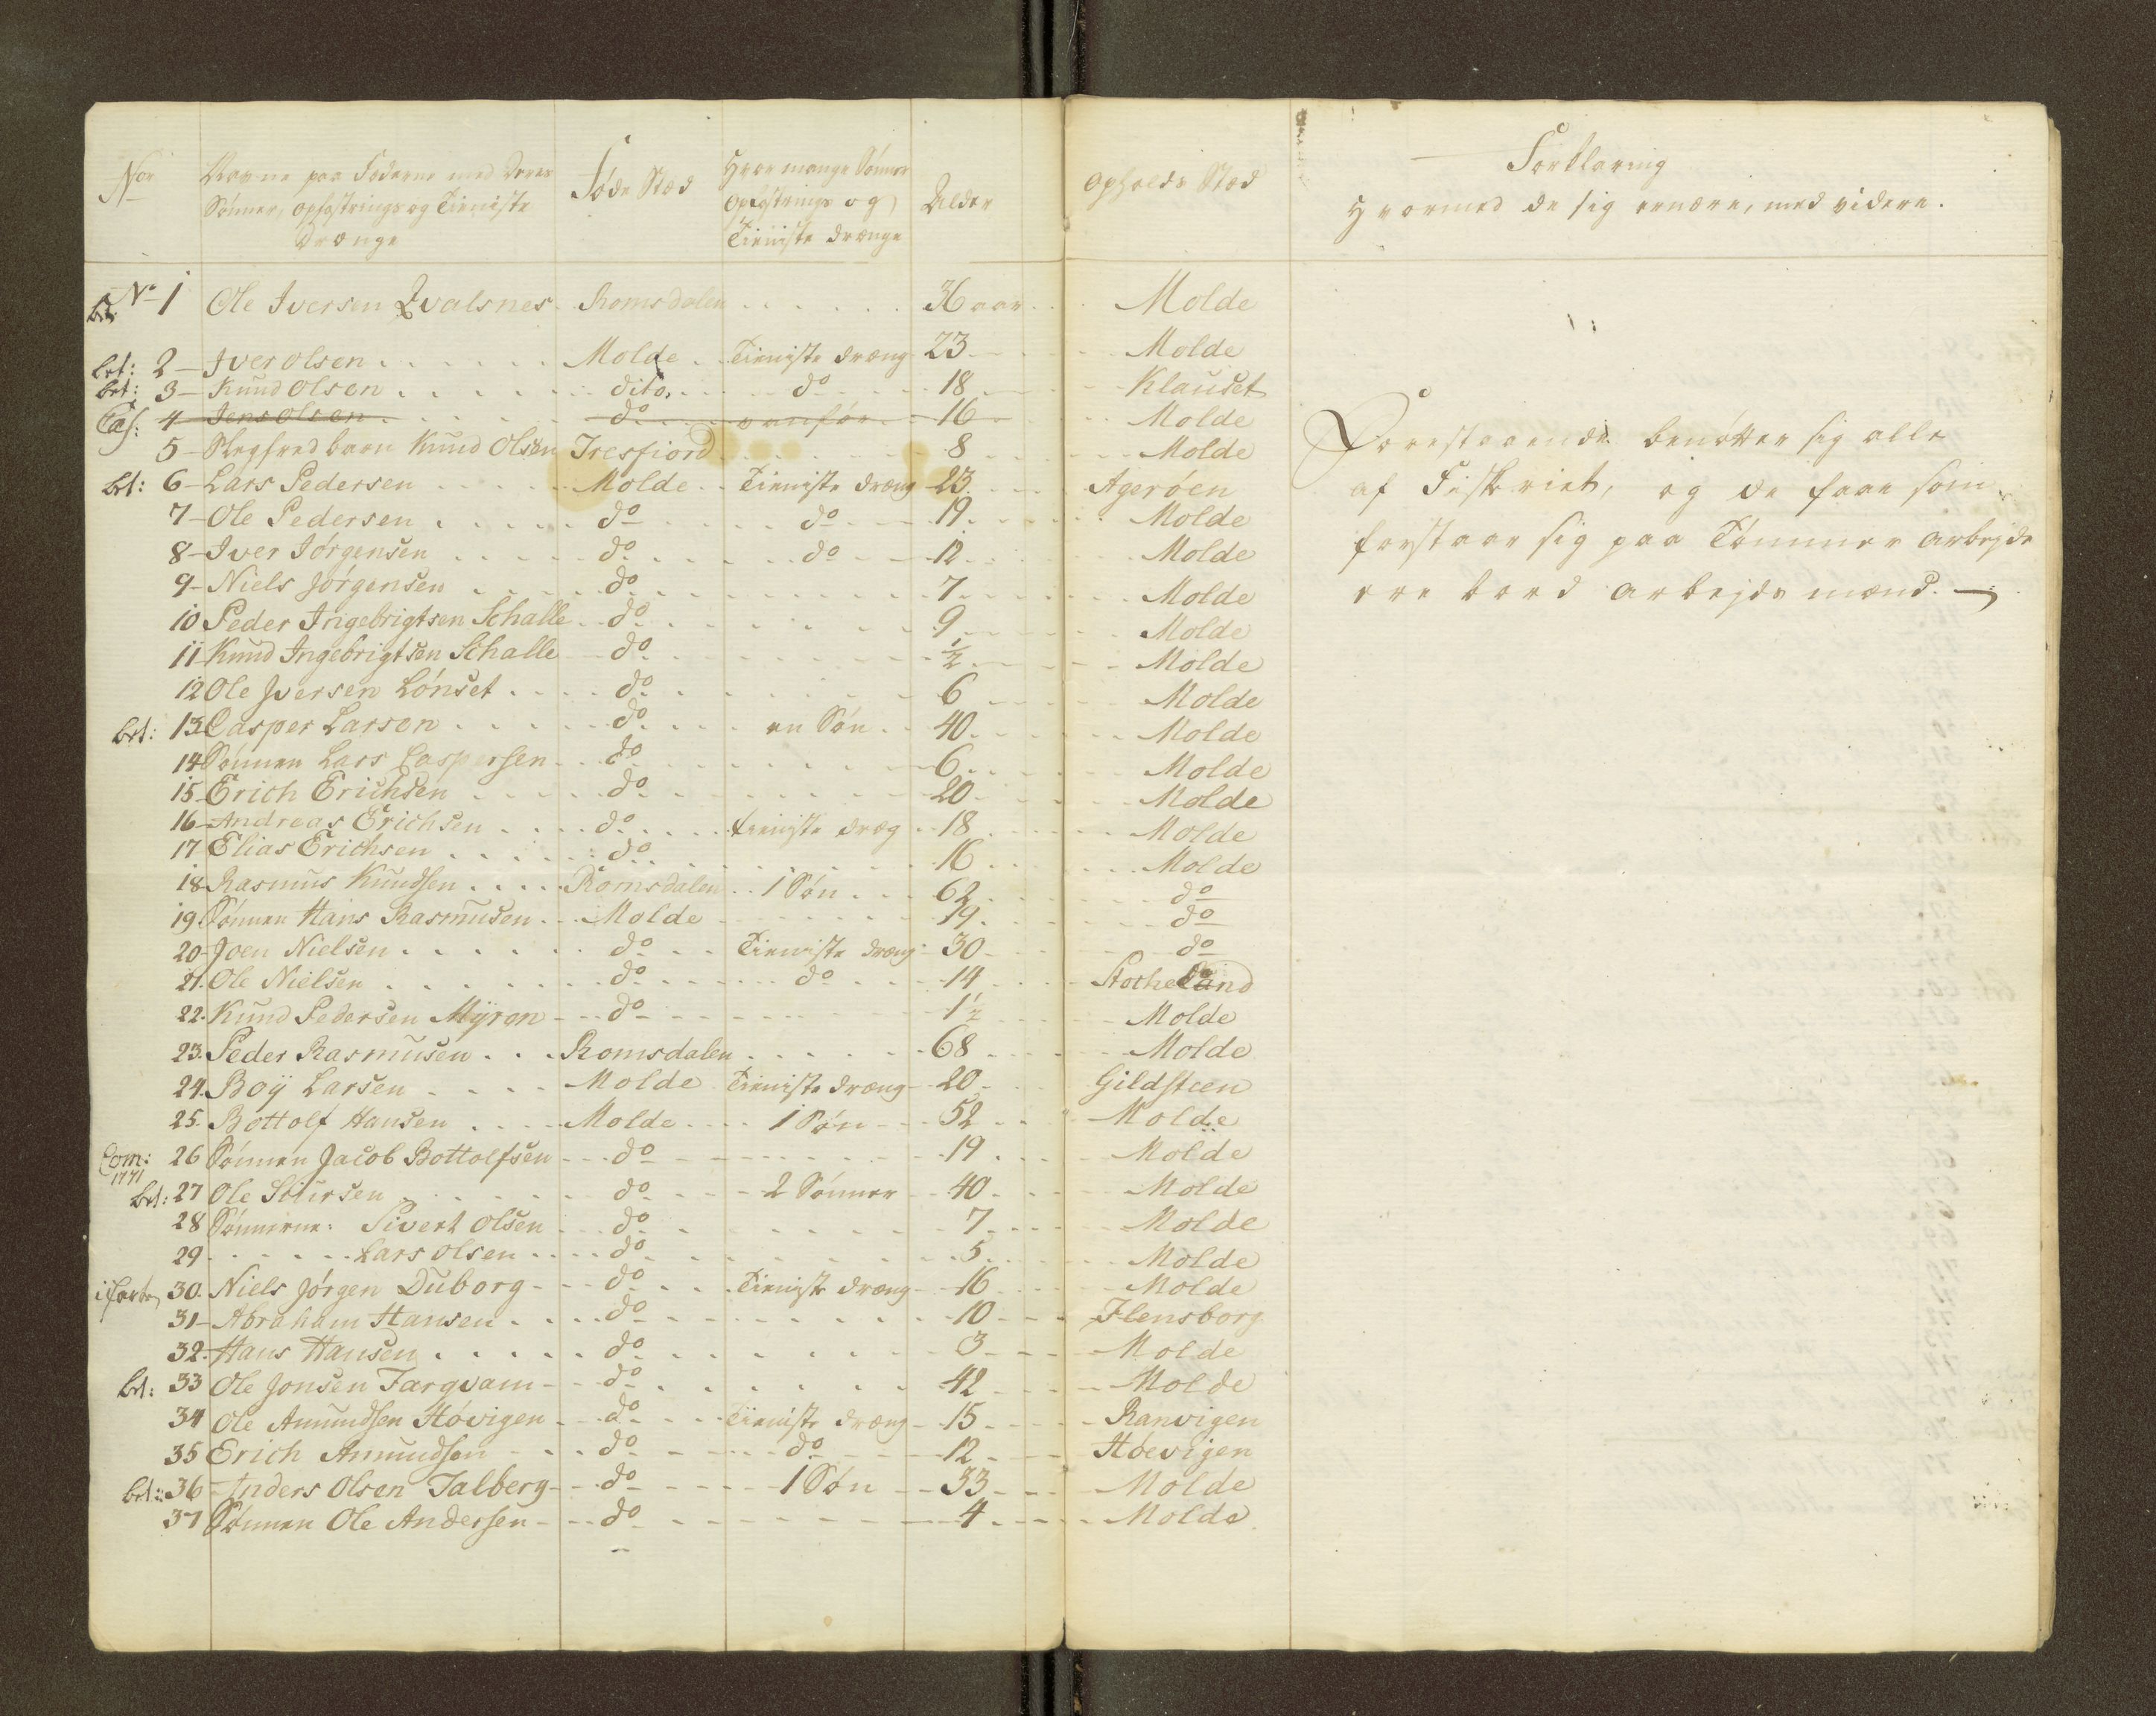 Nor | Navne paa Fæderne med Deres Sönner, opfostrings og Tieniste Drænge | Föde Stæd | Hvor mange Sönner opfostrings og Tieniste drænge | Alder | opholds Stæd | Forklaring Hvormed de sig ernære, med videre.
No 1 Ole Iversen Qvalsnes Romsdalen 36 aar Molde
brt: 2 Iver olsen Molde Tieniste dræng 23 Molde
brt: 3 Knud olsen dito, do 18 Klauset
Cas: 4 Jens olsen do vanför 16 Molde
5 Slegfred barn Knud Olsen Tresfiord 8 Molde
brt: 6 Lars Pedersen Molde Tieniste dræng 23 Agerøen
7 Ole Pedersen do do 19 Molde
8 Iver Jørgensen do do 12 Molde
9 Niels Jørgensen do 7 Molde
10 Peder Ingebrigtsen Schalle do 9 Molde
11 Knud Ingebrigtsen Schalle do 1/2 Molde
12 Ole Iversen Lønset do 6 Molde
brt: 13 Casper Larsen do en Søn 40 Molde
14 Sønnen Lars Caspersen do 6 Molde
15 Erich Erichsen do 20 Molde
16 Andreas Erichsen do tieniste dræg 18 Molde
17 Elias Erichsen do 16 Molde
18 Rasmus Knudsen Romsdalen 1 Søn 62 do
19 Sønnen Hans Rasmusen Molde 19 do
20 Joen Nielsen do Tieniste dræng 30 do
21. Ole Nielsen do do 14
22. Knud Pedersen Myren do 1 1/2 Molde
23. Peder Rasmusen Romsdalen 68 Molde
24. Boÿ Larsen Molde Tieniste dræng 20 Gildsteen
25. Bottolf Hansen Molde 1 Søn 52 Molde
Com: 1771 26 Sønnen Jacob Bottolfsen do 19 Molde
brt: 27 Ole Siursen do 2 Sønner 40 Molde
28 Sønnerne: Sivert olsen do 7 Molde
29 Lars olsen do 5 Molde
30. Niels Jørgen Duborg do Tieniste dræng 16 Molde
31 Abraham Hansen do 10 Flensborg
32. Hans Hansen do 3 Molde
brt: 33 Ole Jonsen Targvam do 42 Molde
34 Ole Amundsen Høvigen do Tieniste dræng 15 Ranvigen
35 Erich Amundsen do do 12 Høevigen
brt: 36 Anders Olsen Talberg do 1 Søn 33 Molde
37 Sønnen Ole Andersen do 4 Molde
Forestaaende benøtter sig alle
af Fiskeriet, og de faae som
forstaar sig paa Tømmer arbejde
ere bord arbejds mænd.